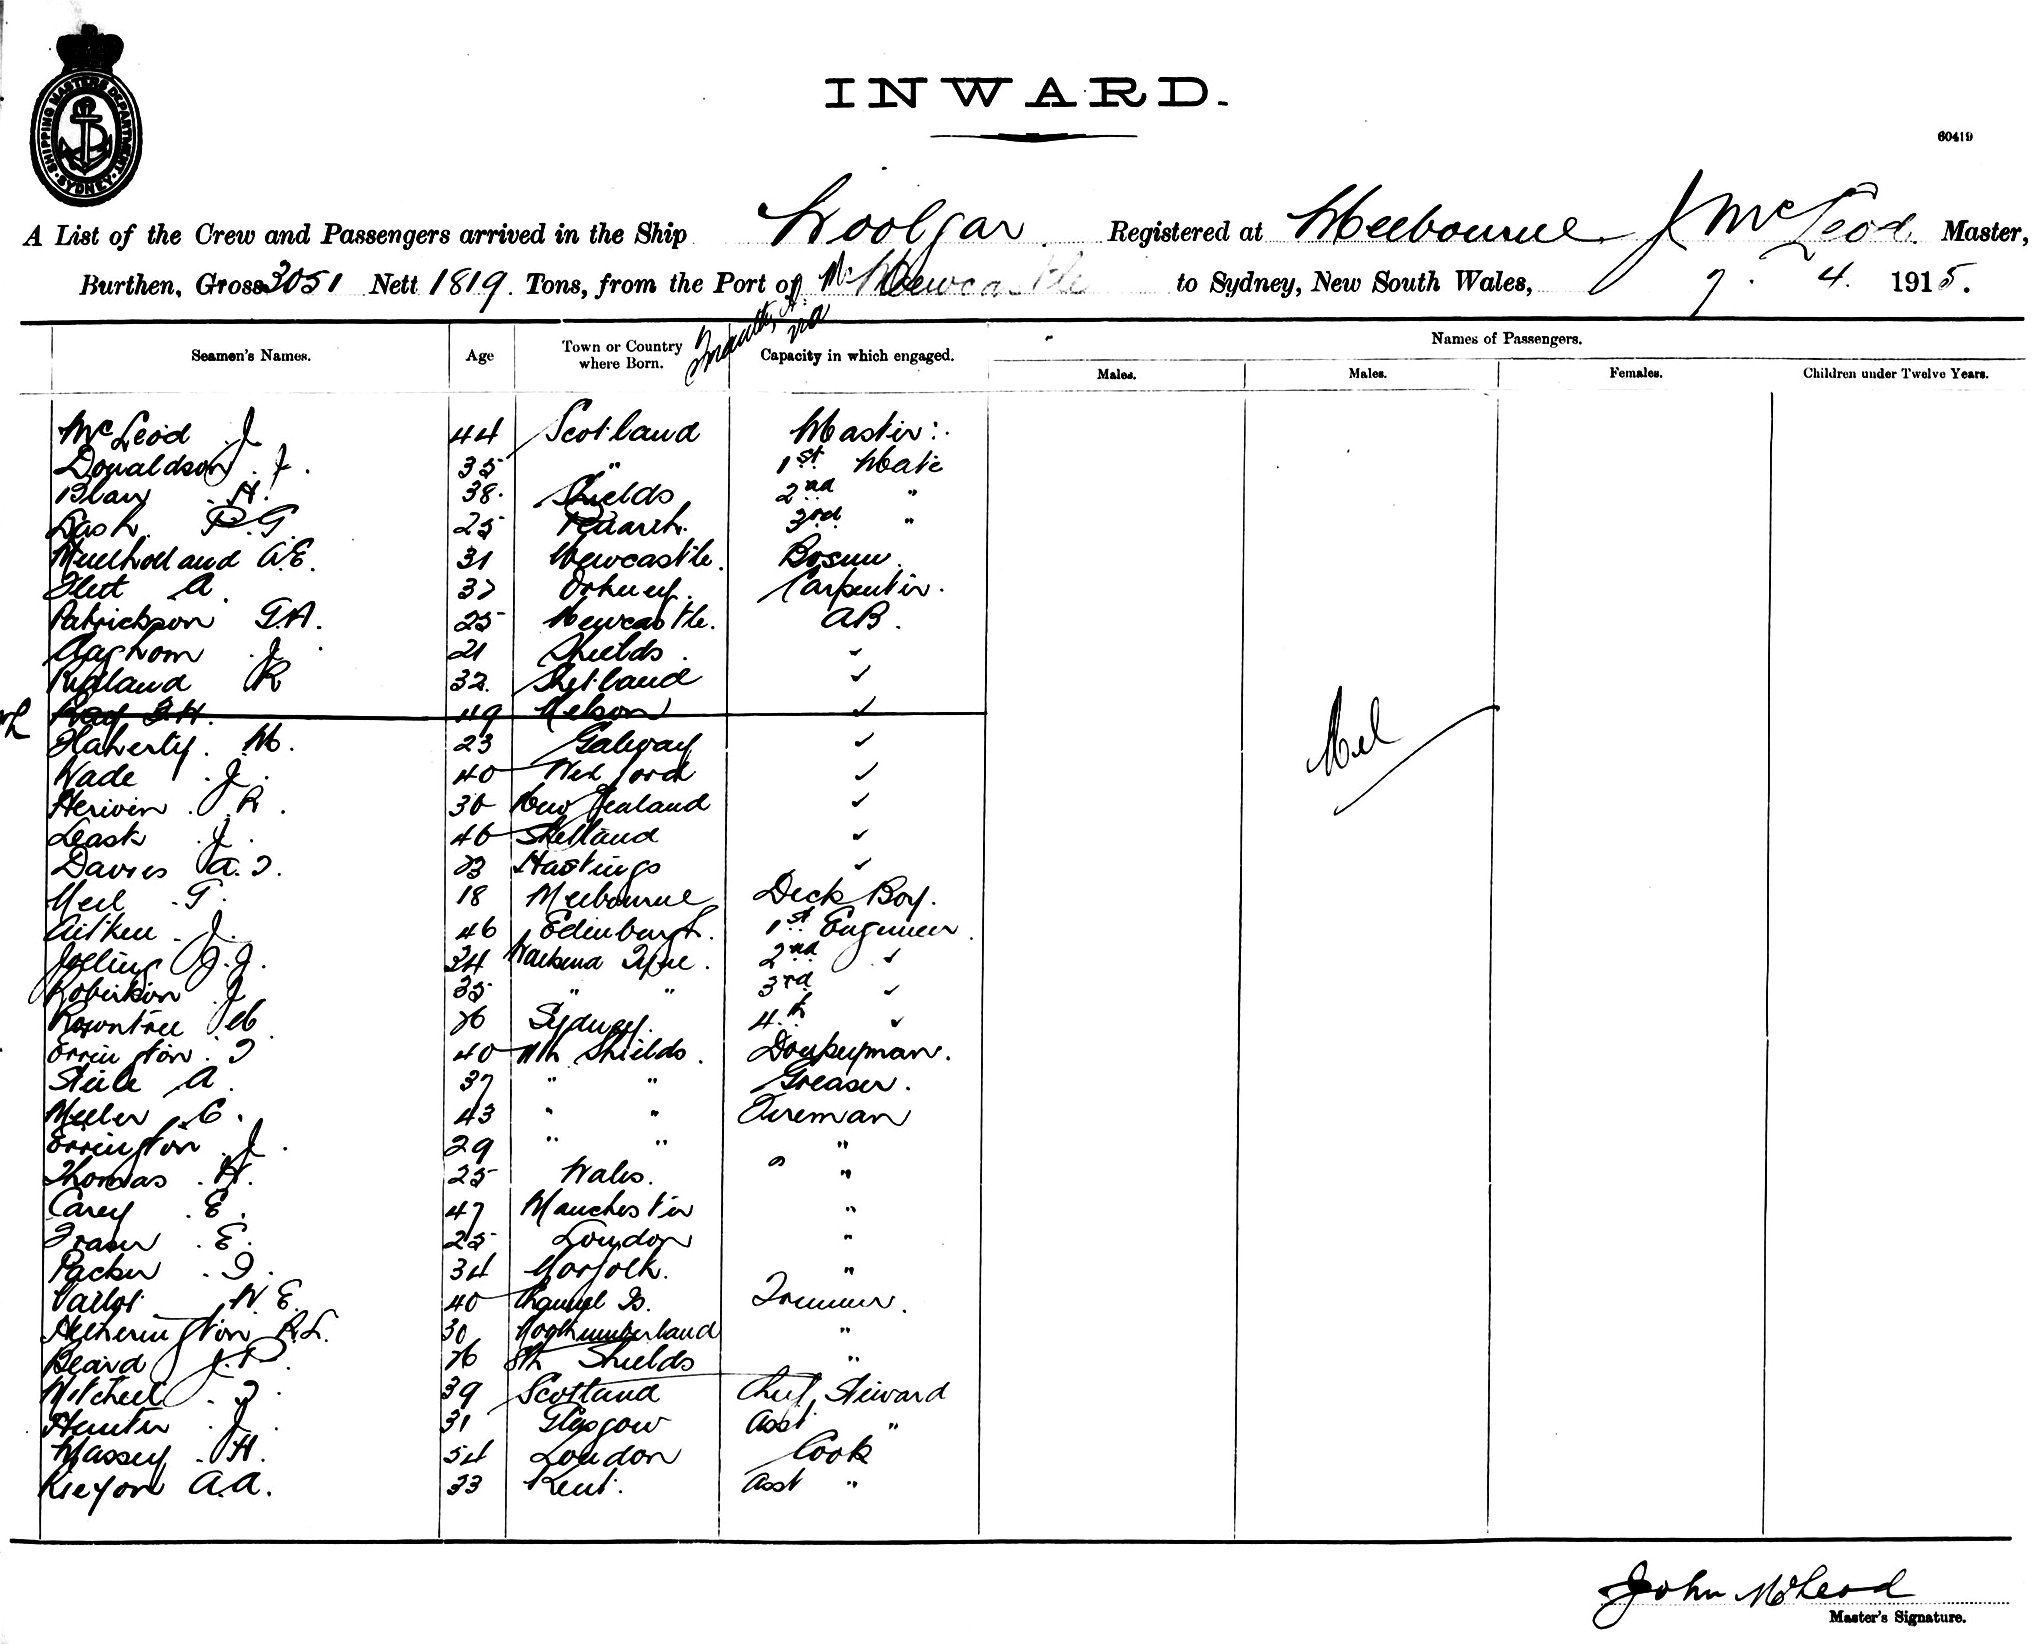 SHIPPING MASTERS DEPARTMENT SYDNEY
INWARD.
60419
A List of the Crew and Passengers arrived in the Ship Woolgar. Registered at Melbourne J McLeod. Master,
Burthen, Gross 3051 Nett 1819. Tons, from the Port of Newcastle to Sydney, New South Wales, 7. 4. 1915.
via
Seamen's Names. Age Town or Country where Born. Capacity in which engaged. Names of Passengers.
Males. Males. Females. Children under Twelve Years.
McLeod J 44 Scotland Master.
Donaldson J. 35 " 1st Mate
H. 38. Shields 2nd "
Lash. P.G. 25 Penarth. 3rd "
Mulholland A.E. 31 Newcastle. Bosun.
Flett A. 37 Orkney. Carpenter.
Patrickson G.H. 25 Newcastle. AB.
Claghorn J. 21 Shields. ✓
R 32. Shetland ✓
49 Nelson ✓
Flaherty. M. 23 Galway ✓
Wade J. 40 Wexford ✓
R. 30 New Zealand ✓
Leask J. 40 Shetland ✓
Davies A.J. 23 Hastings ✓
Neil G. 18 Melbourne Deck Boy.
Aitken J. 46 Edinburgh. 1st Engineer.
Jolling J.J. 34 Wallsend Tyne. 2nd ✓
Robertson J 35 " " 3rd ✓
Rowntree M 26 Sydney. 4th ✓
Errington. T 40 Nth Shields. Donkeyman.
Steele A. 37 " " Greaser.
C. 43 " " Fireman
Errington J. 29 " " "
Thomas. H. 25 Wales. "
Carey E. 47 Manchester "
Fraser E. 25 London "
Packer T. 34 Norfolk. "
W.E. 40 Channel Is. Trimmer.
Hetherington R.L. 30 Northumberland "
Beard J.P. 26 Sth Shields "
Mitchell T. 39 Scotland Chief Steward
Hunter J. 31 Glasgow Asst "
Massey H. 54 London Cook
A.A. 33 Kent. Asst "
Nil
John McLeod
Master's Signature.